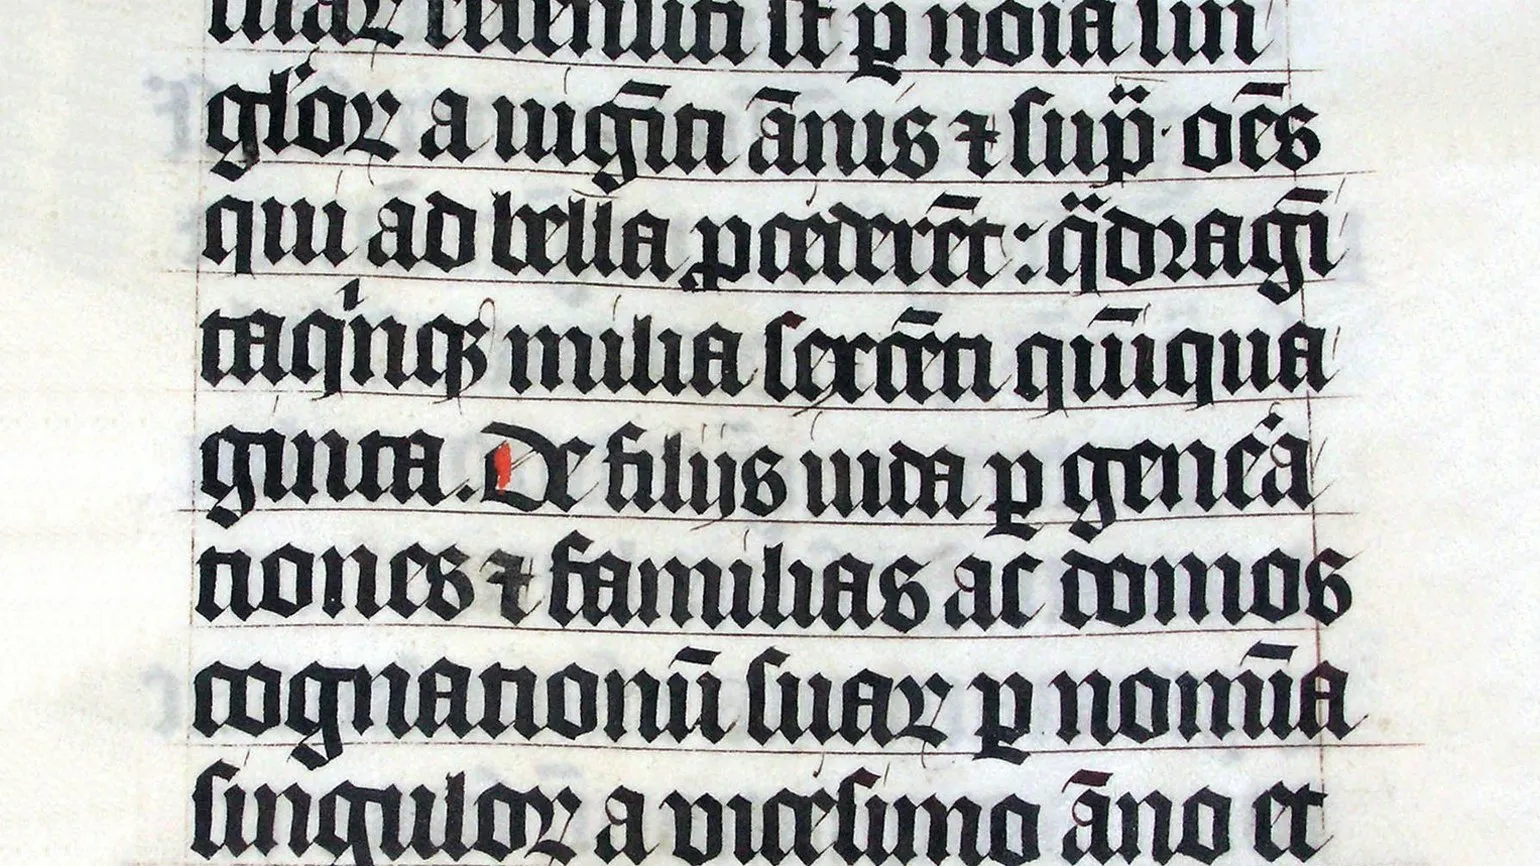 suaꝝ recensiti sūt ꝑ noīa sin
gl'oꝝ a uigīti ānis ⁊ sup̄· oēs
qui ad bella ꝓcederēt : qᷓdragī
taqⁱnqꝫ milia sexcēti qūīqua
ginta. De filijs iuda ꝑ gen̾a
tiones ⁊ familias ac domos
cognationū suaꝝ ꝑ nomīa
singuloꝝ a uicesimo āno et